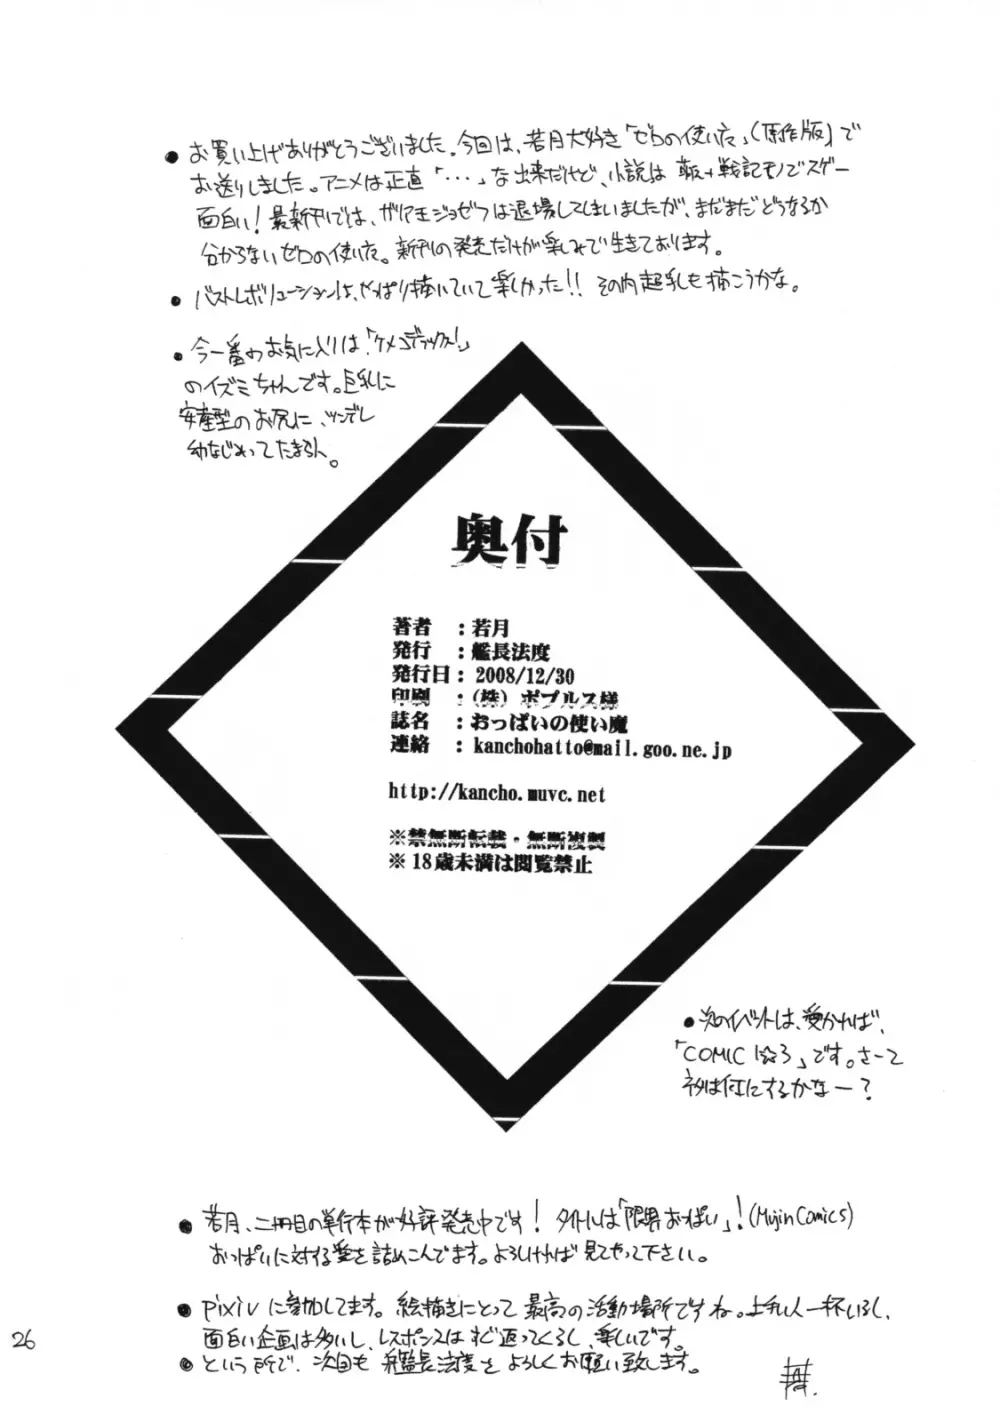 ●お買い上げありがとうございました。今回は、若月大好き「ゼロの使い魔」(原作版)で
お送りしました。アニメは正直「・・・」な出来だけど、小説は 戦記モノでスゲー
面白い！最新刊では、ガリア王ジョゼフは退場してしまいましたが、まだまだどうなるか
分からないゼロの使い魔。新刊の発売だけが楽しみで生きております。
●バストレボリューションは、やっぱり描いていて楽しかった!! その内起乳も描こうかな。
●今一番のお気に入りは「ケメコデラックス！」
のイズミちゃんです。巨乳に
安産型のお尻に、ツンデレ
幼なじみってたまらん。
奥付
著者 ：若月
発行 ：艦長法度
発行日：2008/12/30
印刷 ：(株) ポプルス様
誌名 ：おっぱいの使い魔
連絡 ：kanchohatto@mail.goo.ne.jp
http://kancho.muvc.net
※禁無断転載・無断複製
※18歳未満は閲覧禁止
●次のイベントは、受かれば、
「COMIC1☆3」です。さーて
ネタは何にするかなー？
●若月、二冊目の単行本が好評発売中です！タイトルは「限界おっぱい」！(MujinComics)
おっぱいに対する愛を詰めこんでます。よろしければ見てやって下さい。
●pixivに参加してます。絵描きにとって最高の活動場所ですね。上手い人一杯いるし、
面白い企画は多いし、レスポンスはすぐ返ってくるし、楽しいです。
●という所で、次回も艦長法度をよろしくお願い致します。
26